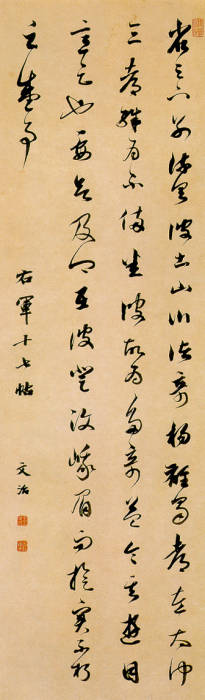 省足下別疏具彼土山川諸奇楊雄蜀都左太沖
三都殊為不備悉彼故為多奇益令其遊目
意足也要欲及卿在彼登汶峨眉而旋實不朽
之盛事
右軍十七帖
文治